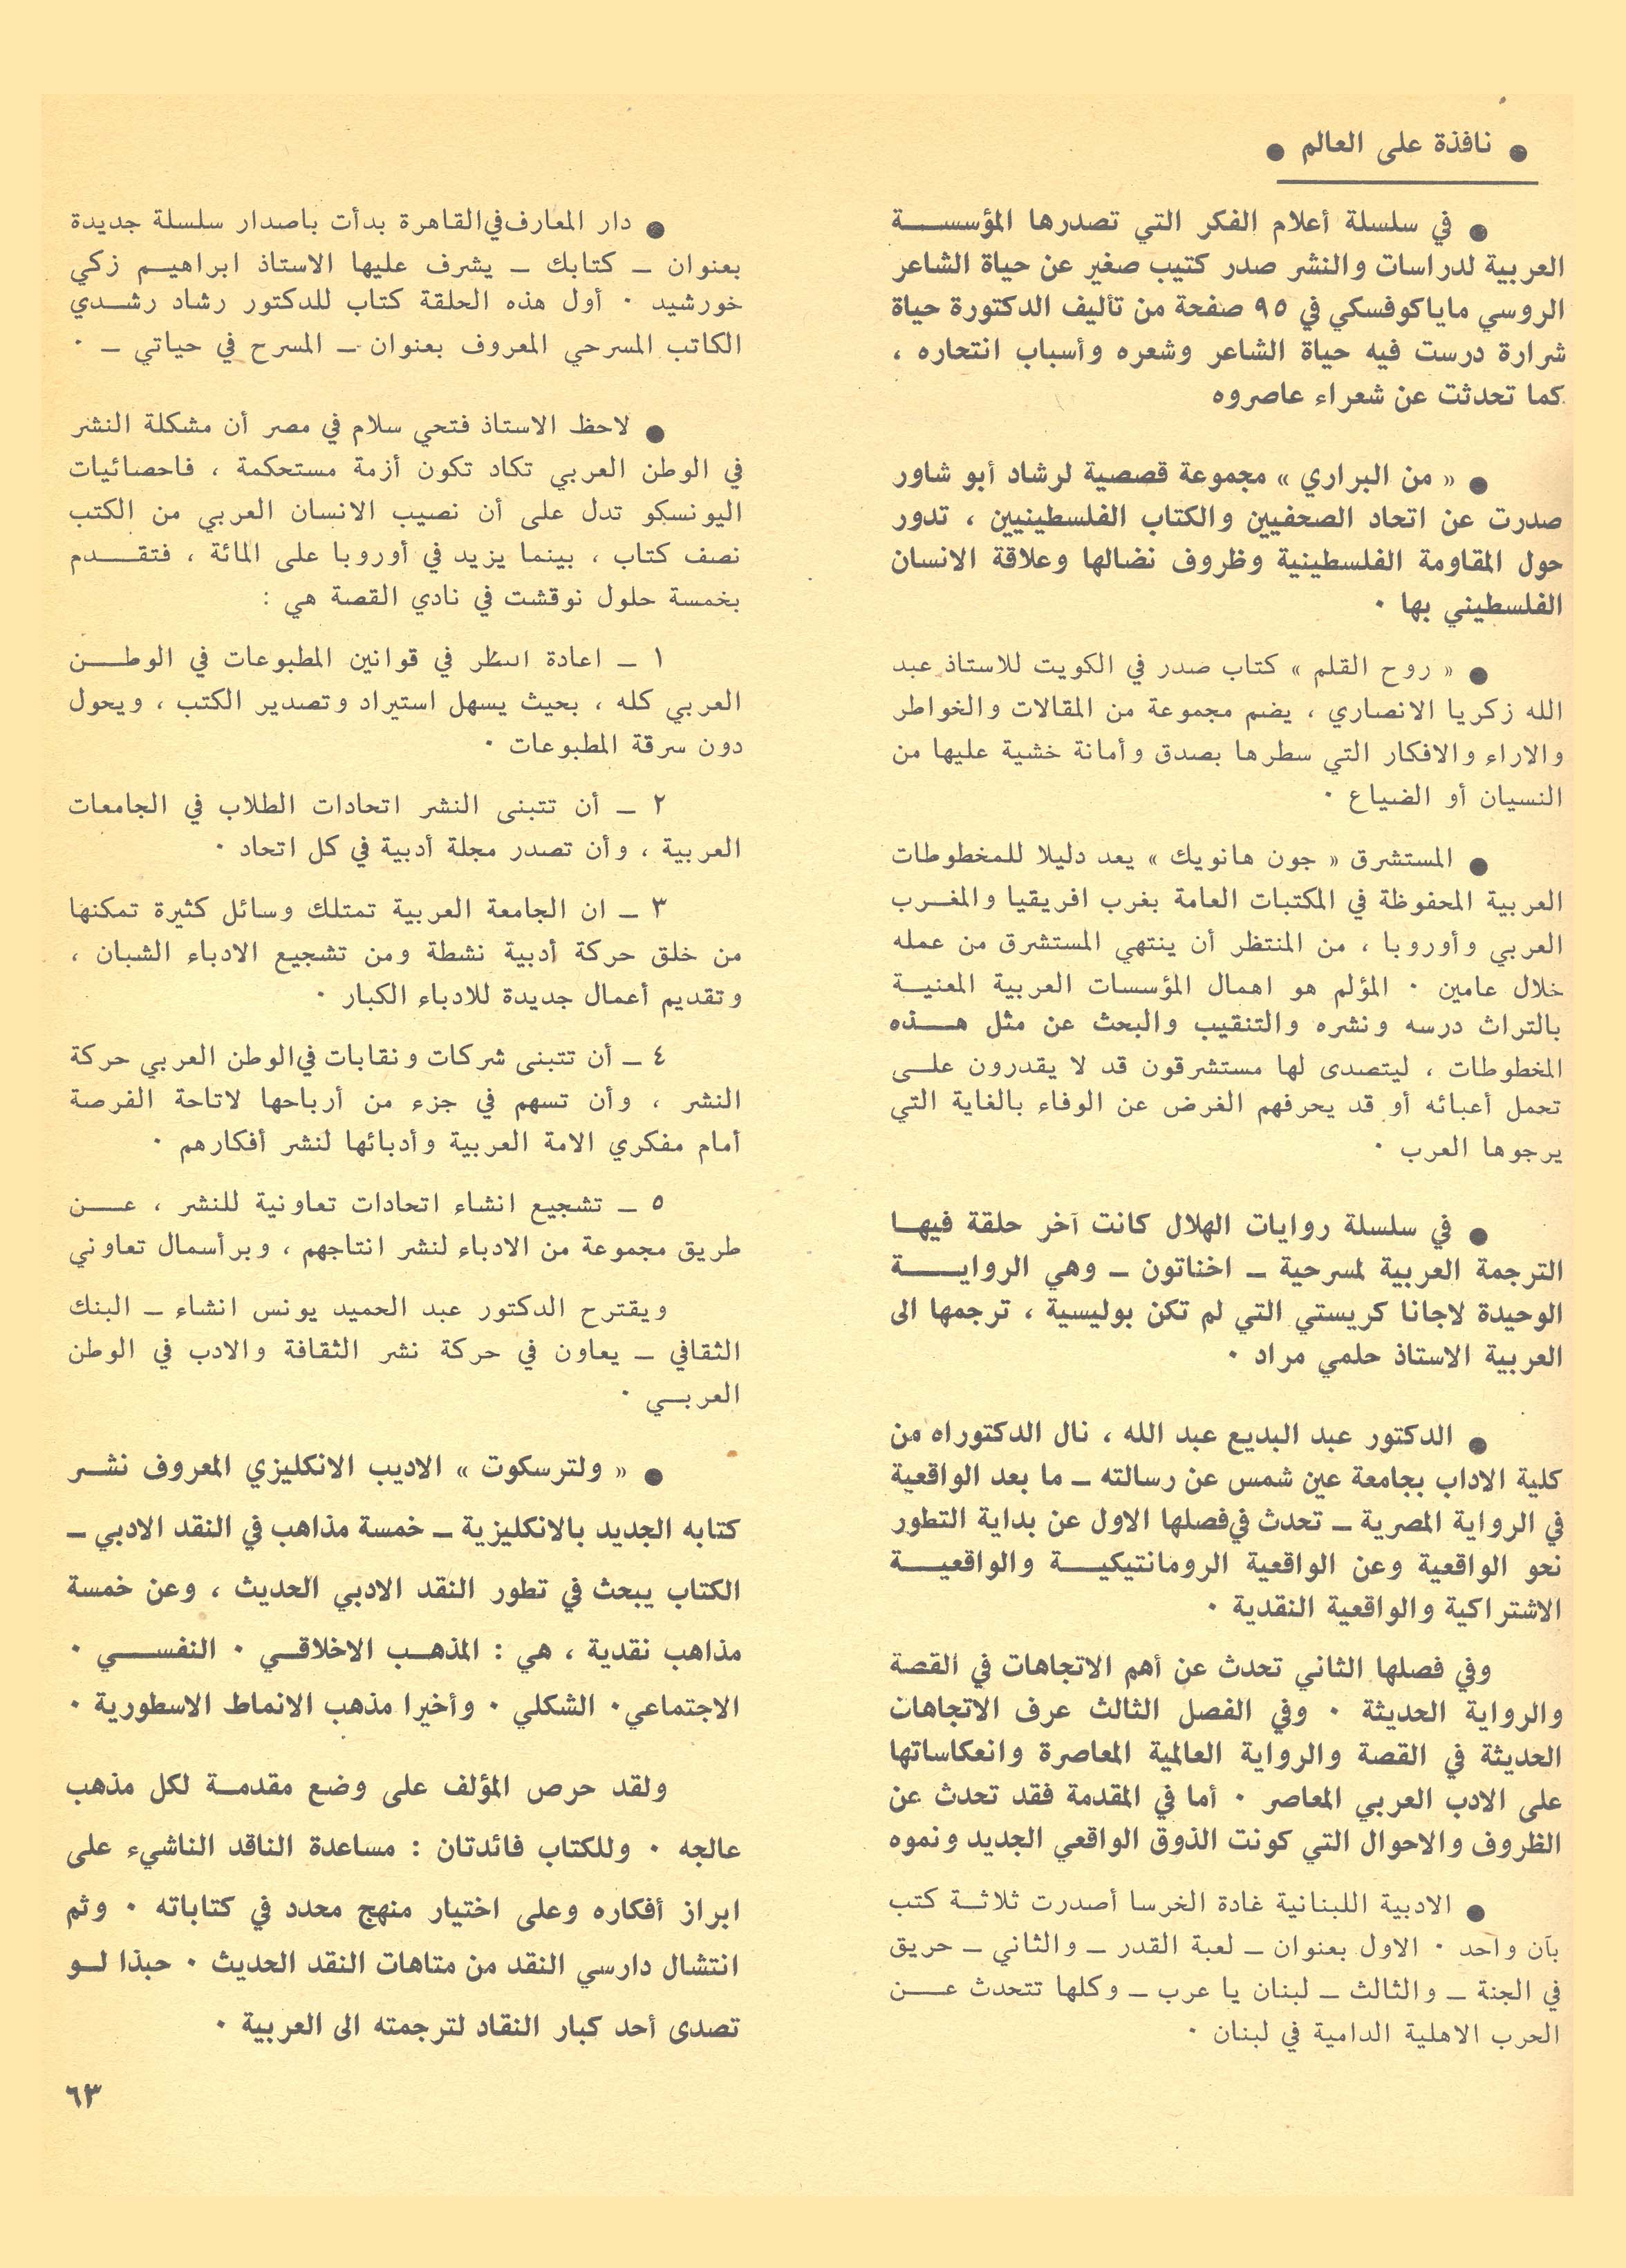 ● نافذة على العالم ●
● في سلسلة أعلام الفكر التي تصدرها المؤسسة
العربية لدراسات والنشر صدر كتيب صغير عن حياة الشاعر
الروسي ماياكوفسكي في ٩٥ صفحة من تأليف الدكتورة حياة
شرارة درست فيه حياة الشاعر وشعره وأسباب انتحاره ،
كما تحدثت عن شعراء عاصروه
● « من البراري » مجموعة قصصية لرشاد أبو شاور
صدرت عن اتحاد الصحفيين والكتاب الفلسطينيين ، تدور
حول المقاومة الفلسطينية وظروف نضالها وعلاقة الانسان
الفلسطيني بها ٠
● « روح القلم » كتاب صدر في الكويت للاستاذ عبد
الله زكريا الانصاري ، يضم مجموعة من المقالات والخواطر
والاراء والافكار التي سطرها بصدق وأمانة خشية عليها من
النسيان أو الضياع ٠
● المستشرق « جون هانويك » يعد دليلا للمخطوطات
العربية المحفوظة في المكتبات العامة بغرب افريقيا والمغرب
العربي وأوروبا ، من المنتظر أن ينتهي المستشرق من عمله
خلال عامين ٠ المؤلم هو اهمال المؤسسات العربية المعنية
بالتراث درسه ونشره والتنقيب والبحث عن مثل هذه
المخطوطات ، ليتصدى لها مستشرقون قد لا يقدرون على
تحمل أعبائه أو قد يحرفهم الغرض عن الوفاء بالغاية التي
يرجوها العرب ٠
● في سلسلة روايات الهلال كانت آخر حلقة فيها
الترجمة العربية لمسرحية ـ اخناتون ـ وهي الرواية
الوحيدة لاجاثا كريستي التي لم تكن بوليسية ، ترجمها الى
العربية الاستاذ حلمي مراد ٠
● الدكتور عبد البديع عبد الله ، نال الدكتوراه من
كلية الاداب بجامعة عين شمس عن رسالته ـ ما بعد الواقعية
في الرواية المصرية ـ تحدث في فصلها الاول عن بداية التطور
نحو الواقعية وعن الواقعية الرومانتيكية والواقعية
الاشتراكية والواقعية النقدية ٠
وفي فصلها الثاني تحدث عن أهم الاتجاهات في القصة
والرواية الحديثة ٠ وفي الفصل الثالث عرف الاتجاهات
الحديثة في القصة والرواية العالمية المعاصرة وانعكاساتها
على الادب العربي المعاصر ٠ أما في المقدمة فقد تحدث عن
الظروف والاحوال التي كونت الذوق الواقعي الجديد ونموه
● الادبية اللبنانية غادة الخرسا أصدرت ثلاثة كتب
بآن واحد ٠ الاول بعنوان ـ لعبة القدر ـ والثاني ـ حريق
في الجنة ـ والثالث ـ لبنان يا عرب ـ وكلها تتحدث عن
الحرب الاهلية الدامية في لبنان ٠
● دار المعارف في القاهرة بدأت باصدار سلسلة جديدة
بعنوان ـ كتابك ـ يشرف عليها الاستاذ ابراهيم زكي
خورشيد ٠ أول هذه الحلقة كتاب للدكتور رشاد رشدي
الكاتب المسرحي المعروف بعنوان ـ المسرح في حياتي ـ ٠
● لاحظ الاستاذ فتحي سلام في مصر أن مشكلة النشر
في الوطن العربي تكاد تكون أزمة مستحكمة ، فاحصائيات
اليونسكو تدل على أن نصيب الانسان العربي من الكتب
نصف كتاب ، بينما يزيد في أوروبا على المائة ، فتقدم
بخمسة حلول نوقشت في نادي القصة هي :
١ ـ اعادة النظر في قوانين المطبوعات في الوطن
العربي كله ، بحيث يسهل استيراد وتصدير الكتب ، ويحول
دون سرقة المطبوعات ٠
٢ ـ أن تتبنى النشر اتحادات الطلاب في الجامعات
العربية ، وأن تصدر مجلة أدبية في كل اتحاد ٠
٣ ـ ان الجامعة العربية تمتلك وسائل كثيرة تمكنها
من خلق حركة أدبية نشطة ومن تشجيع الادباء الشبان ،
وتقديم أعمال جديدة للادباء الكبار ٠
٤ ـ أن تتبنى شركات ونقابات في الوطن العربي حركة
النشر ، وأن تسهم في جزء من أرباحها لاتاحة الفرصة
أمام مفكري الامة العربية وأدبائها لنشر أفكارهم ٠
٥ ـ تشجيع انشاء اتحادات تعاونية للنشر ، عن
طريق مجموعة من الادباء لنشر انتاجهم ، وبرأسمال تعاوني
ويقترح الدكتور عبد الحميد يونس انشاء ـ البنك
الثقافي ـ يعاون في حركة نشر الثقافة والادب في الوطن
العربي ٠
● « ولترسكوت » الاديب الانكليزي المعروف نشر
كتابه الجديد بالانكليزية ـ خمسة مذاهب في النقد الادبي ـ
الكتاب يبحث في تطور النقد الادبي الحديث ، وعن خمسة
مذاهب نقدية ، هي : المذهب الاخلاقي ٠ النفسي ٠
الاجتماعي ٠ الشكلي ٠ وأخيرا مذهب الانماط الاسطورية ٠
ولقد حرص المؤلف على وضع مقدمة لكل مذهب
عالجه ٠ وللكتاب فائدتان : مساعدة الناقد الناشيء على
ابراز أفكاره وعلى اختيار منهج محدد في كتاباته ٠ وثم
انتشال دارسي النقد من متاهات النقد الحديث ٠ حبذا لو
تصدى أحد كبار النقاد لترجمته الى العربية ٠
٦٣